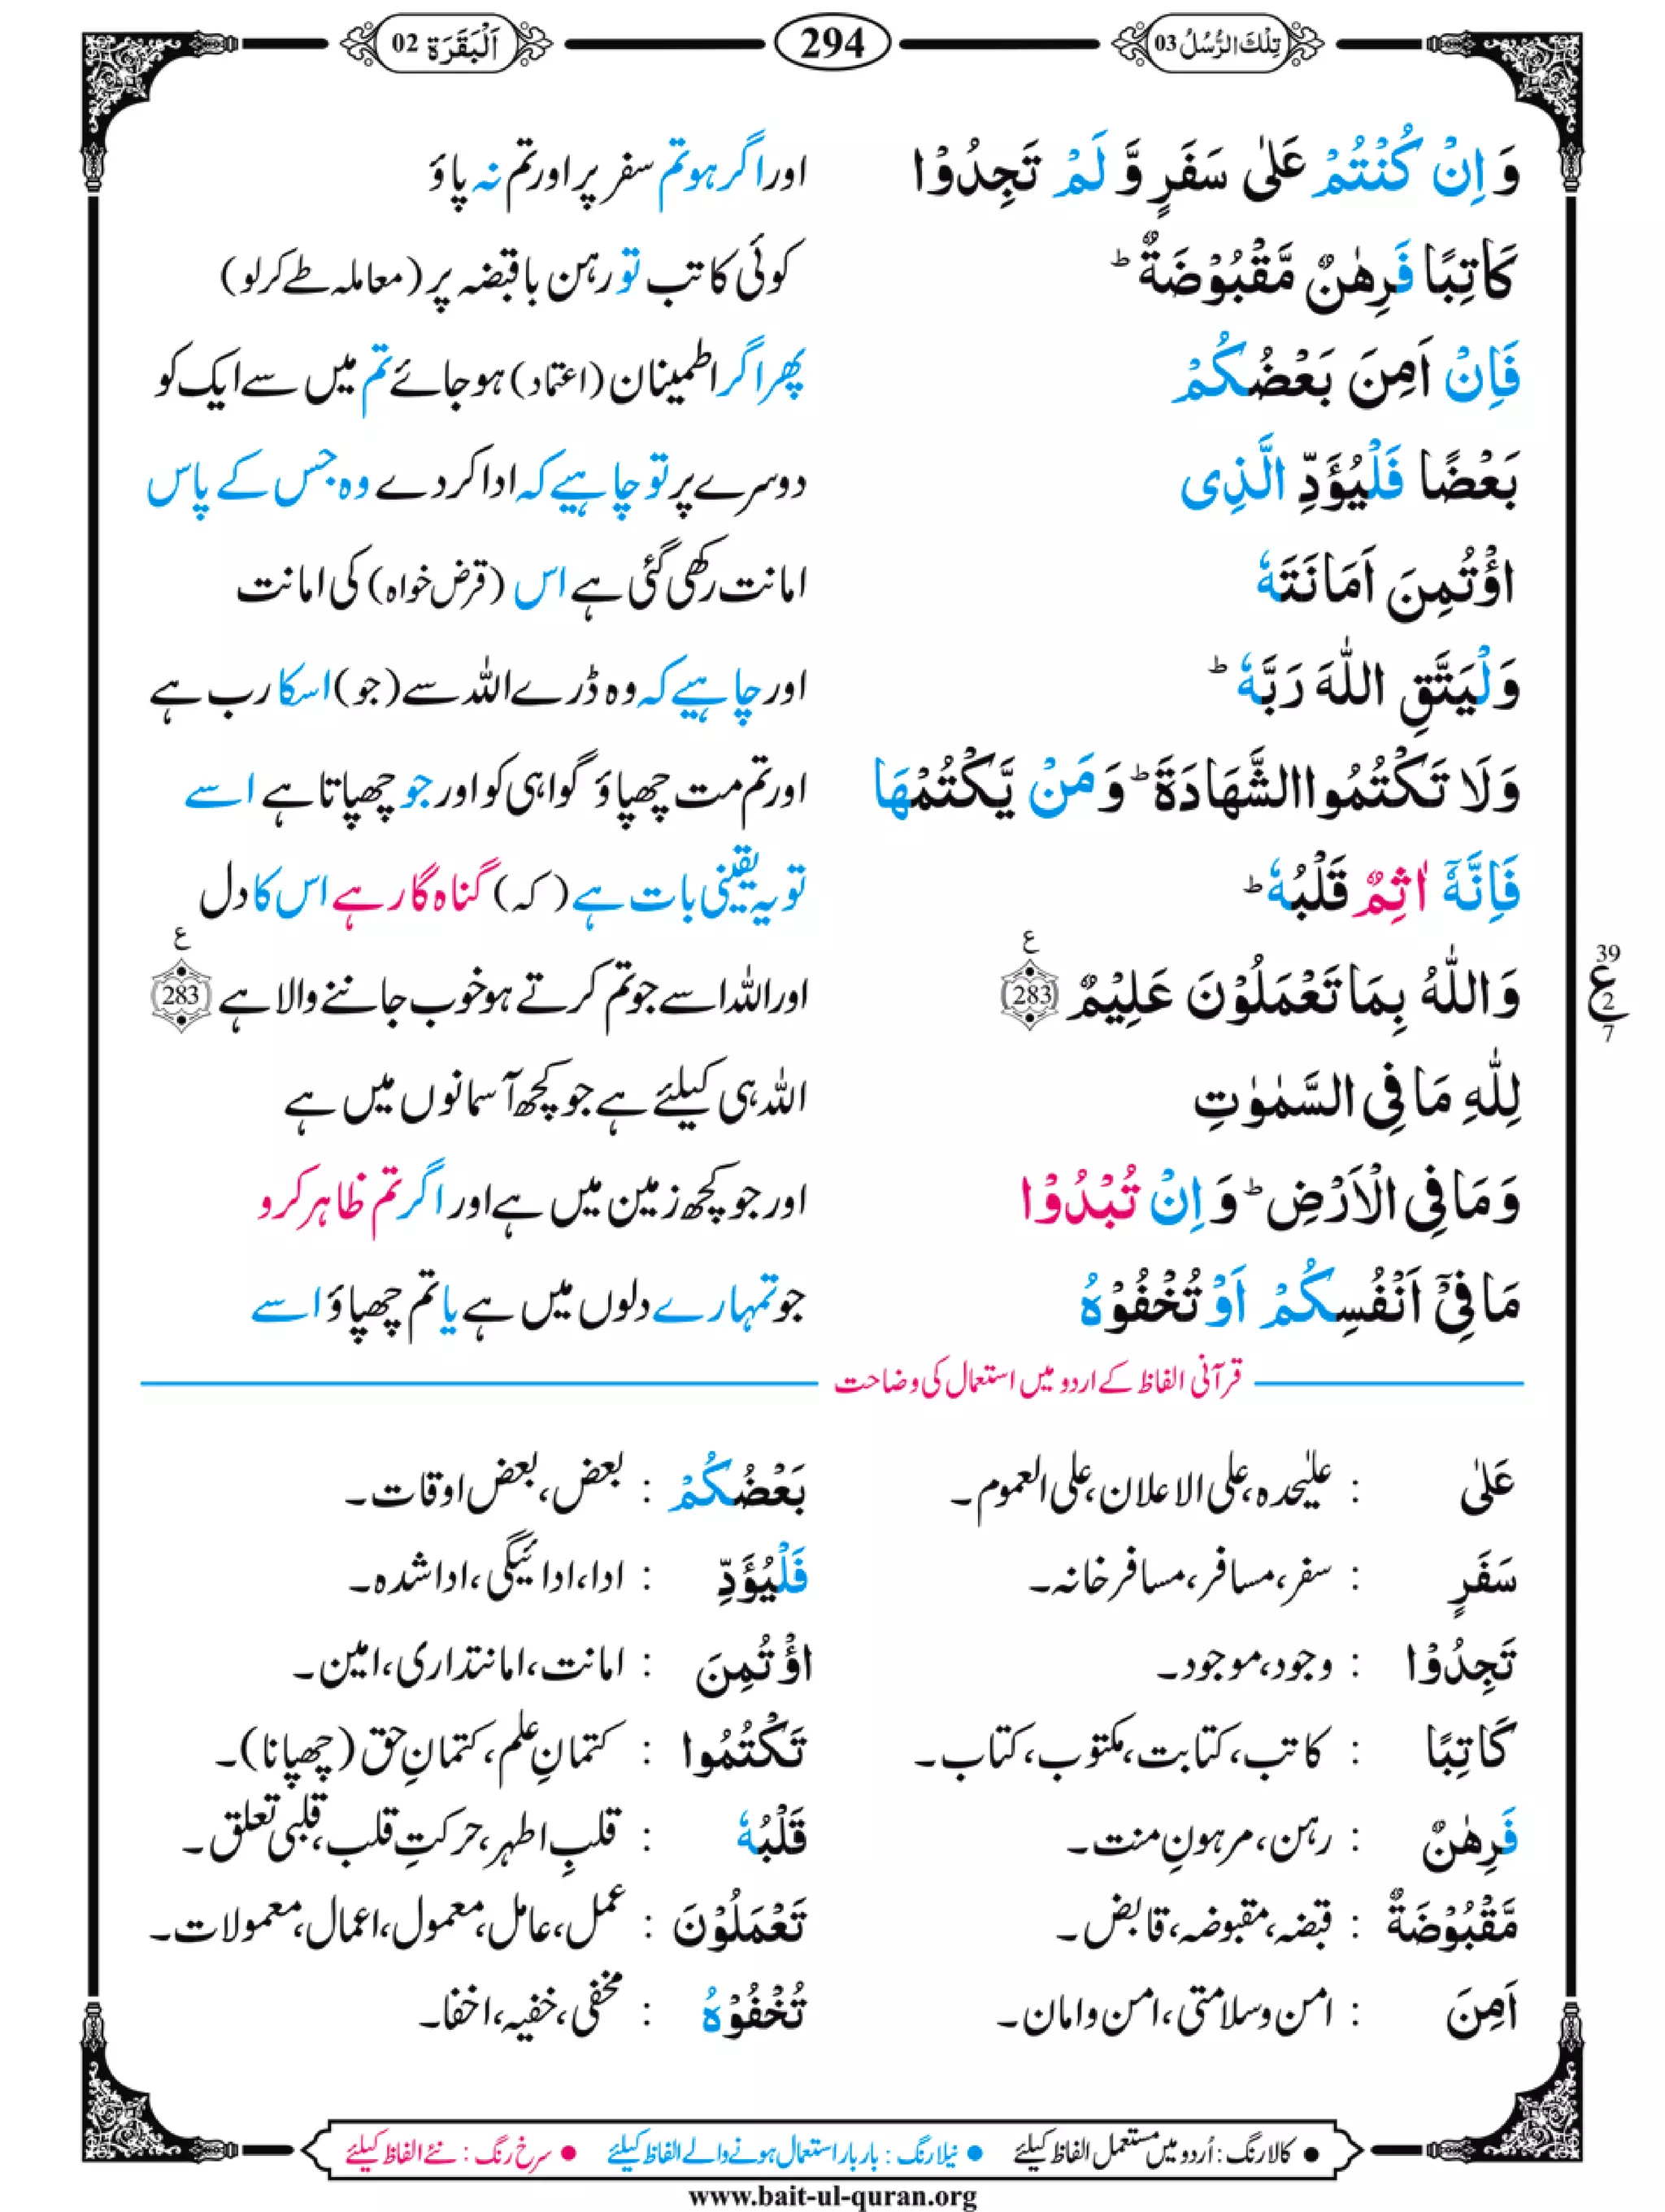 تِلْكَ الرُّسُلُ 03
294
اَلْبَقَرَة 02
وَ اِنْ كُنْتُمْ عَلٰى سَفَرٍ وَّ لَمْ تَجِدُوْا
اور اگر ہو تم سفر پر اور تم نہ پاؤ
كَاتِبًا فَرِهٰنٌ مَّقْبُوْضَةٌ ؕ
کوئی کاتب تو رہن باقبضہ پر (معاملہ طے کر لو)
فَاِنْ اَمِنَ بَعْضُكُمْ
پھر اگر اطمینان (اعتماد) ہو جائے تم میں سے ایک کو
بَعْضًا فَلْيُؤَدِّ الَّذِى
دوسرے پر تو چاہیے کہ ادا کر دے وہ جس کے پاس
اؤْتُمِنَ اَمَانَتَهٗ
امانت رکھی گئی ہے اس (قرض خواہ) کی امانت
وَلْيَتَّقِ اللّٰهَ رَبَّهٗ ؕ
اور چاہیے کہ وہ ڈرے اللہ سے (جو) اسکا رب ہے
وَلَا تَكْتُمُوا الشَّهَادَةَ ؕ وَ مَنْ يَّكْتُمْهَا
اور تم مت چھپاؤ گواہی کو اور جو چھپاتا ہے اسے
فَاِنَّهٗٓ اٰثِمٌ قَلْبُهٗ ؕ
تو یہ یقینی بات ہے (کہ) گناہ گار ہے اس کا دل
وَاللّٰهُ بِمَا تَعْمَلُوْنَ عَلِيْمٌ 283 ع
اور اللہ اسے جو تم کرتے ہو خوب جاننے والا ہے 283 ع
39 ع 2 7
لِلّٰهِ مَا فِى السَّمٰوٰتِ
اللہ ہی کیلئے ہے جو کچھ آسمانوں میں ہے
وَ مَا فِى الْاَرْضِ ؕ وَ اِنْ تُبْدُوْا
اور جو کچھ زمین میں ہے اور اگر تم ظاہر کرو
مَا فِىْٓ اَنْفُسِكُمْ اَوْ تُخْفُوْهُ
جو تمہارے دلوں میں ہے یا تم چھپاؤ اسے
قرآنی الفاظ کے اردو میں استعمال کی وضاحت
عَلٰى : علیٰحدہ، علی الاعلان، علی العموم۔
بَعْضُكُمْ : بعض، بعض اوقات۔
سَفَرٍ : سفر، مسافر، مسافر خانہ۔
فَلْيُؤَدِّ : ادا، ادائیگی، ادا شدہ۔
تَجِدُوْا : وجود، موجود۔
اؤْتُمِنَ : امانت، امانتداری، امین۔
كَاتِبًا : کاتب، کتابت، مکتوب، کتاب۔
تَكْتُمُوا : کتمانِ علم، کتمانِ حق (چھپانا)۔
فَرِهٰنٌ : رہن، مرہونِ منت۔
قَلْبُهٗ : قلبِ اطہر، حرکتِ قلب، قلبی تعلق۔
مَّقْبُوْضَةٌ : قبضہ، مقبوضہ، قابض۔
تَعْمَلُوْنَ : عمل، عامل، معمول، اعمال، معمولات۔
اَمِنَ : امن و سلامتی، امن و امان۔
تُخْفُوْهُ : مخفی، خفیہ، اخفا۔
● کالا رنگ : اُردو میں مستعمل الفاظ کیلئے ● نیلا رنگ : بار بار استعمال ہونے والے الفاظ کیلئے ● سرخ رنگ : نئے الفاظ کیلئے
www.bait-ul-quran.org